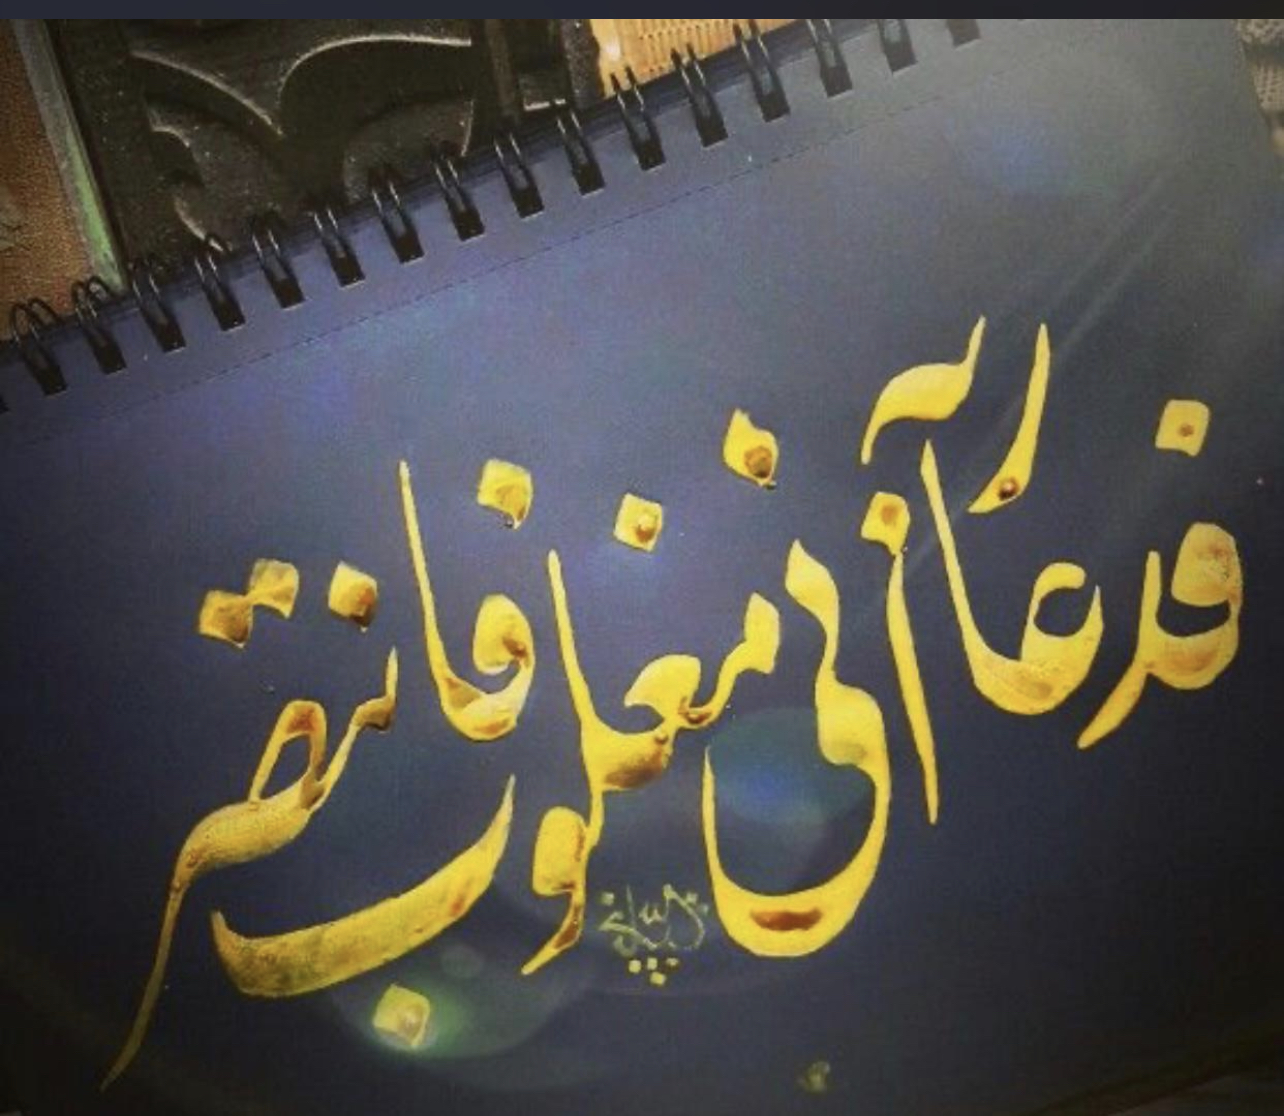 فدعا ربه أني مغلوب فانتصر